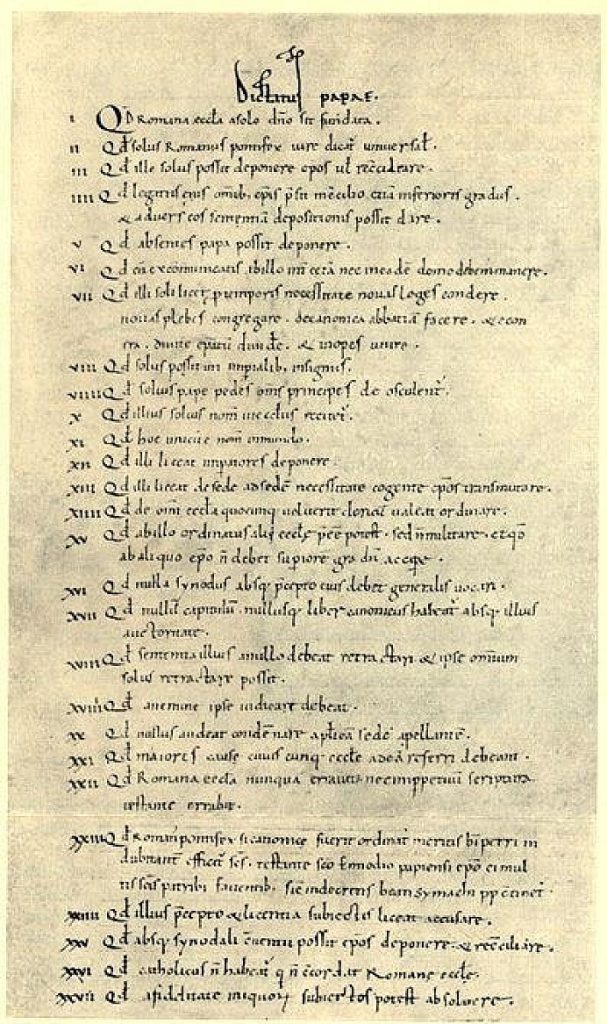 Dictatus papae.
I Qd Romana eccla a solo dno sit fundata.
II Qd solus Romanus pontifex iure dicat universal.
III Qd ille solus possit deponere epos ul reciliare.
IIII Qd legatus eius omib epis psit in cilio etiã inferioris gradus.
& adversus eos sententiã depositionis possit dare.
V Qd absentes papa possit deponere.
VI Qd cũ excommunicatis ab illo int cetã nec in eadẽ domo debem manere.
VII Qd illi soli licet p temporis necessitate novas leges condere.
novas plebes congregare. de canonica abbatiã facere. & econ
tra. divitẽ epatũ dividẽ. & inopes unire.
VIII Qd solus possit uti impialib insigniis.
VIIII Qd solius pape pedes oms principes deosculent.
X Qd illius solius nom in ecclus recitet.
XI Qd hoc unicũ ẽ nom in mundo.
XII Qd illi liceat impatores deponere.
XIII Qd illi liceat de sede ad sedẽ necessitate cogente epos transmutare.
XIIII Qd de omi eccla quocunq voluerit clericũ valeat ordinare.
XV Qd ab illo ordinatus alii ecclẽ pẽẽ potest. sed ñ militare. et qd
ab aliquo epo ñ debet supiore gradũ accipe.
XVI Qd nulla synodus absq pcepto eius debet generalis vocari.
XVII Qd nullũ capitulũ nullusq liber canonicus habeat absq illius
auctoritate.
XVIII Qd sententia illius a nullo debeat retractari & ipse omium
solus retractare possit.
XVIIII Qd a nemine ipse iudicare debeat.
XX Qd nullus audeat condẽnare aplicã sedẽ apellantẽ.
XXI Qd maiores cause cuiuscunq eccle ad eã referri debeant.
XXII Qd Romana eccla nunquã erravit nec imppetuũ scriptura
testante errabit.
XXIII Qd Roman pontifex si canonice fuerit ordinat meritis bi petri in
dubitant efficit scs. testante sco Ennodio papiensi epo ei mul
tis scis patrib faventib. sic in decretis beati symachi pp ctinet.
XXIIII Qd illius pcepto & licentia subiectis liceat accusare.
XXV Qd absq synodali cventu possit epos deponere & recciliare.
XXVI Qd catholicus ñ habeat q ñ ccordat Romane eccle.
XXVII Qd a fidelitate iniquoꝝ subiectos potest absolvere.